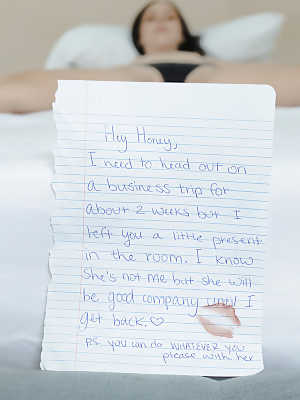 Hey Honey,
I need to head out on
a business trip for
about 2 weeks but I
left you a little present
in the room. I know
she's not me but she will
be good company until I
get back.♡
ps. you can do WHATEVER you
please with her